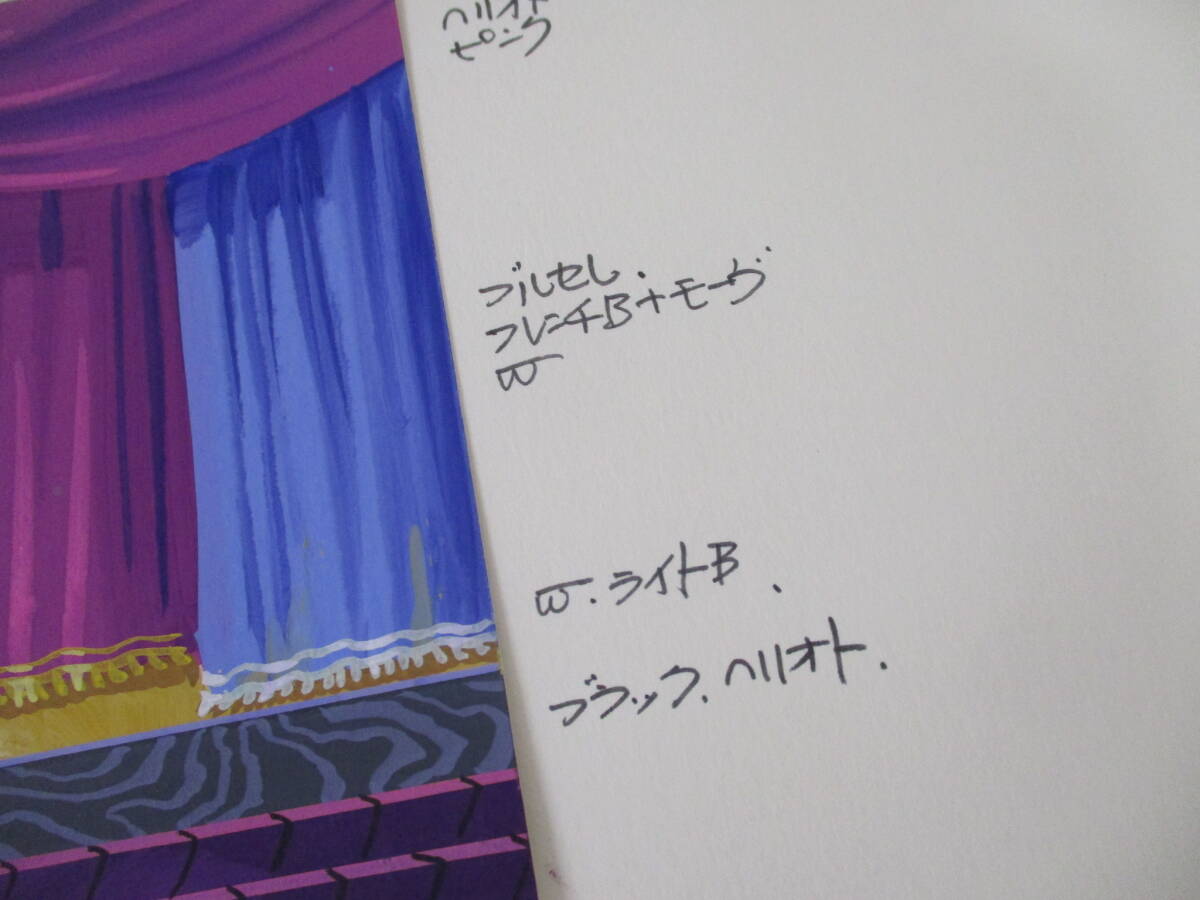 ヘリオト
ピンク
ブルセレ.
フレンチB+モーヴ
W
W.ライトB.
ブラック.ヘリオト.